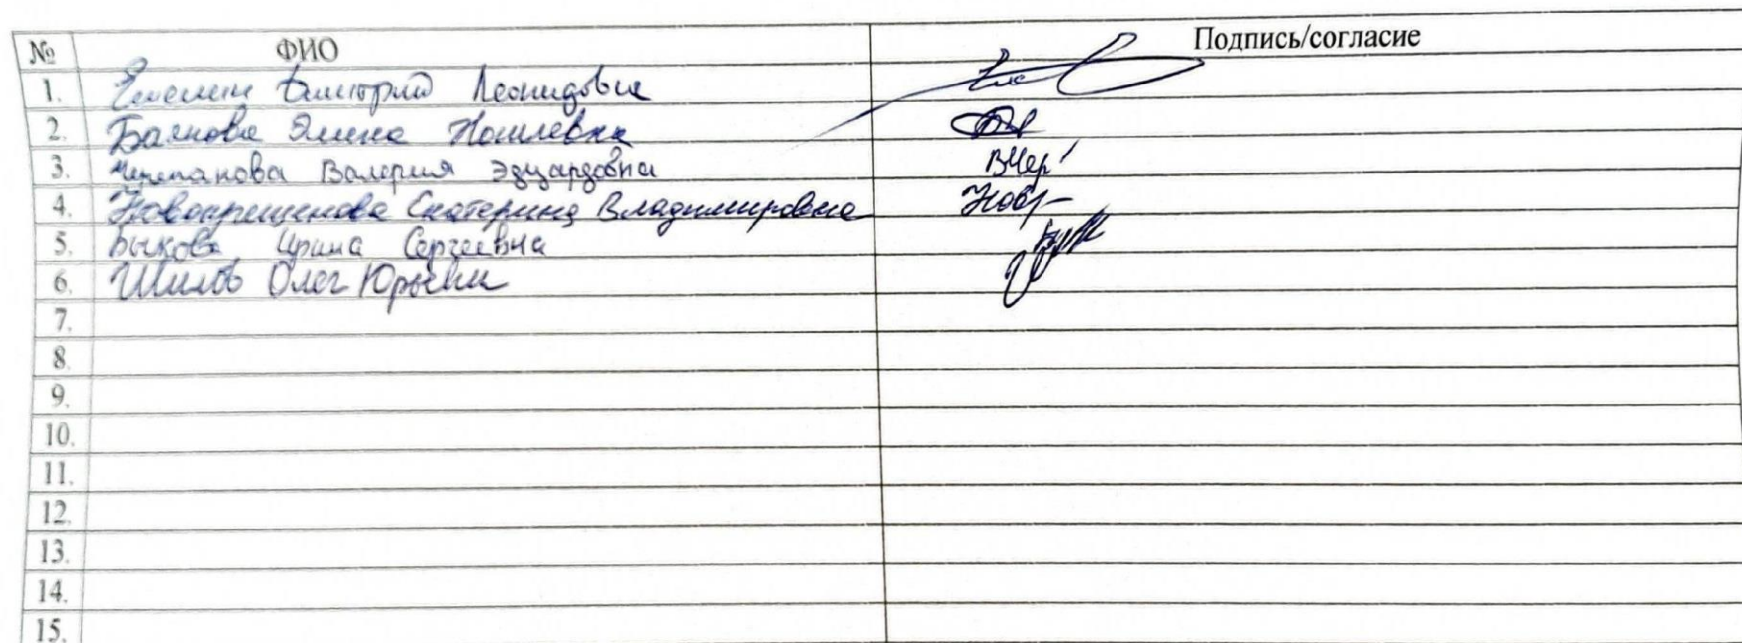 № ФИО Подпись/согласие
1. Дмитрий Леонидович
2. Баянова Элина Наилевна
3. Черепанова Валерия Эдуардовна ВЧер
4. Новокрещенова Екатерина Владимировна Новр
5. Быкова Ирина Сергеевна
6. Шилов Олег Юрьевич
7.
8.
9.
10.
11.
12.
13.
14.
15.